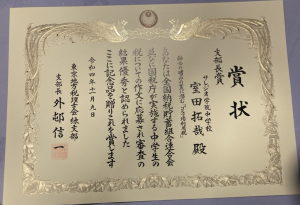 賞状
支部長賞
サレジオ学院中学校
室田拓哉 殿
あなたは全国納税貯蓄組合連合会
並びに国税庁が実施する中学生の
税についての作文に応募され審査の
結果優秀と認められました
ここに記念品を贈りこれを賞します
令和四年十一月九日
東京地方税理士会 緑支部
支部長 外邨信一